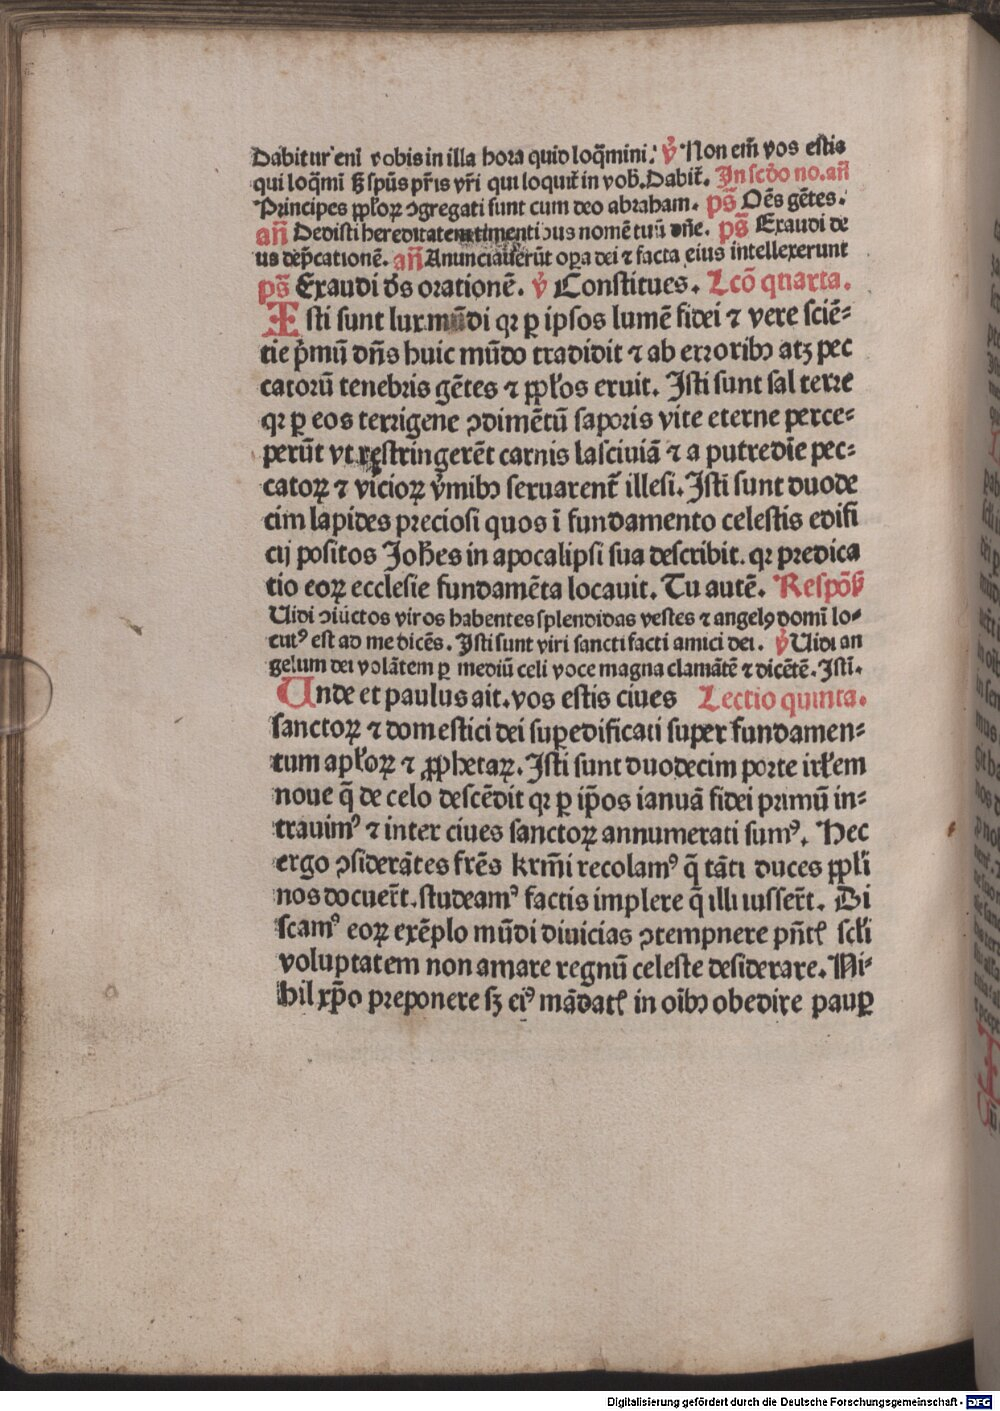 Dabitur enī vobis in illa hora quid loq̄mini. ꝟ Non em̄ vos estis
qui loq̄mī ß spūs pr̄is vr̄i qui loquit̄ in vob̄. Dabit̄. In scd̄o no. an̄
Principes ppl̄oꝝ ↄgregati sunt cum deo abraham. ps̄ Oēs gētes.
an̄ Dedisti hereditatem timentibus nomē tuū dn̄e. ps̄ Exaudi de
us dep̄cationē. an̄ Anunciauerūt opa dei ⁊ facta eius intellexerunt
ps̄ Exaudi ds̄ orationē. ꝟ Constitues. Lcō quarta.
Isti sunt lux mūdi qꝛ ꝑ ipsos lumē fidei ⁊ vere sciē⸗
tie p̄mū dn̄s huic mūdo tradidit ⁊ ab erroribꝫ atꝫ pec
catorū tenebris gētes ⁊ ppl̄os eruit. Isti sunt sal terre
qꝛ ꝑ eos terrigene ↄdimētū saporis vite eterne perce⸗
perūt vt restringerēt carnis lasciuiā ⁊ a putredīe pec⸗
catoꝝ ⁊ vicioꝝ v̓mibꝫ seruarent̄ illesi. Isti sunt duode
cim lapides preciosi quos ī fundamento celestis edifi
cij positos Joh̄es in apocalipsi sua describit. qꝛ predica
tio eoꝝ ecclesie fundamēta locauit. Tu autē. Respōß
Uidi ↄiūctos viros habentes splendidas vestes ⁊ angelꝰ domī lo⸗
cutꝰ est ad me dicēs. Isti sunt viri sancti facti amici dei. ꝟ Uidi an
gelum dei volātem ꝑ mediū celi voce magna clamātē ⁊ dicētē. Istī.
Unde et paulus ait. vos estis ciues Lectio quinta.
sanctoꝝ ⁊ domestici dei suꝑedificati super fundamen⸗
tum apl̄oꝝ ⁊ ꝓphetaꝝ. Isti sunt duodecim porte irl̄em
noue q̄ de celo descēdit qꝛ ꝑ ip̄os ianuā fidei primū in⸗
trauimꝰ ⁊ inter ciues sanctoꝝ annumerati sumꝰ. Hec
ergo ↄsiderātes frēs krm̄i recolamꝰ q̄ tāti duces ppl̄i
nos docuer̄t. studeamꝰ factis implere q̄ illi iusser̄t. Di
scamꝰ eoꝝ exēplo mūdi diuicias ↄtempnere pn̄tꝭ scl̄i
voluptatem non amare regnū celeste desiderare. Ni⸗
hil xp̄o preponere sꝫ eiꝰ mādatꝭ in oībꝫ obedire pauꝑ
Digitalisierung gefördert durch die Deutsche Forschungsgemeinschaft - DFG